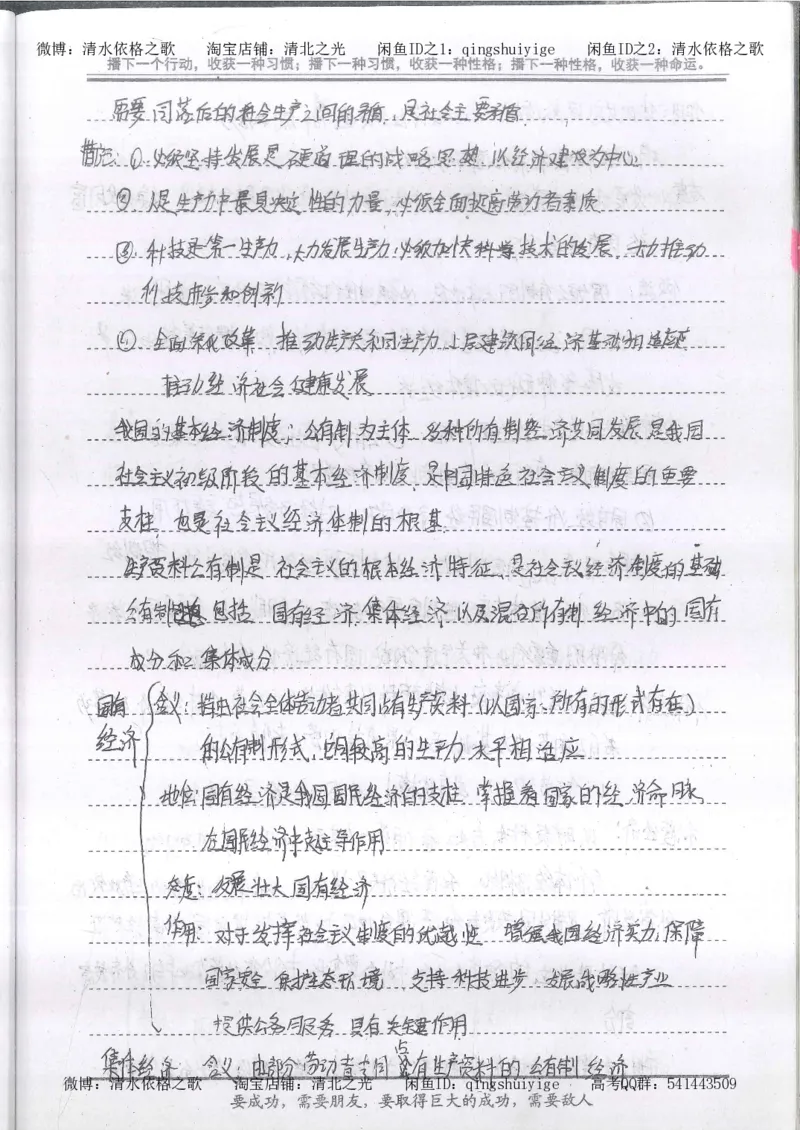 微博：清水依格之歌 淘宝店铺：清北之光 闲鱼ID之1：qingshuiyige 闲鱼ID之2：清水依格之歌
播下一个行动，收获一种习惯；播下一种习惯，收获一种性格；播下一种性格，收获一种命运。
需要同落后的社会生产之间的矛盾，是社会主要矛盾
措施：①必须坚持发展是硬道理的战略思想，以经济建设为中心
②人是生产力中最具决定性的力量，必须全面提高劳动者素质
③科技是第一生产力，大力发展生产力必须加快科学技术的发展，大力推动
科技进步和创新
④全面深化改革，推动生产关系同生产力上层建筑同经济基础相适应
推动经济社会健康发展
我国的基本经济制度：公有制为主体 多种所有制经济共同发展是我国
社会主义初级阶段的基本经济制度，是中国特色社会主义制度的重要
支柱，也是社会主义经济体制的根基
生产资料公有制是社会主义的根本经济特征，是社会主义经济制度的基础
公有制 包括 国有经济，集体经济，以及混合所有制经济中的国有
成分和集体成分
国有经济
含义：指由社会全体劳动者共同占有生产资料（以国家所有的形式存在）
的公有制形式，它同较高的生产力水平相适应
地位：国有经济是我国国民经济的支柱，掌握着国家的经济命脉
在国民经济中起主导作用
态度：发展壮大国有经济
作用：对于发挥社会主义制度的优越性，增强我国经济实力，保障
国家安全，保护生态环境，支持科技进步，发展战略性产业
提供公务服务，具有关键作用
集体经济 含义：由部分劳动者共同占有生产资料的公有制经济
微博：清水依格之歌 淘宝店铺：清北之光 闲鱼ID：qingshuiyige 高考QQ群：541443509
要成功，需要朋友，要取得巨大的成功，需要敌人